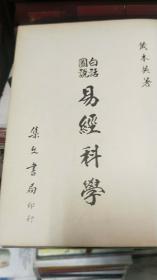 黃本英著
白話圖說
易經科學
集文書局印行